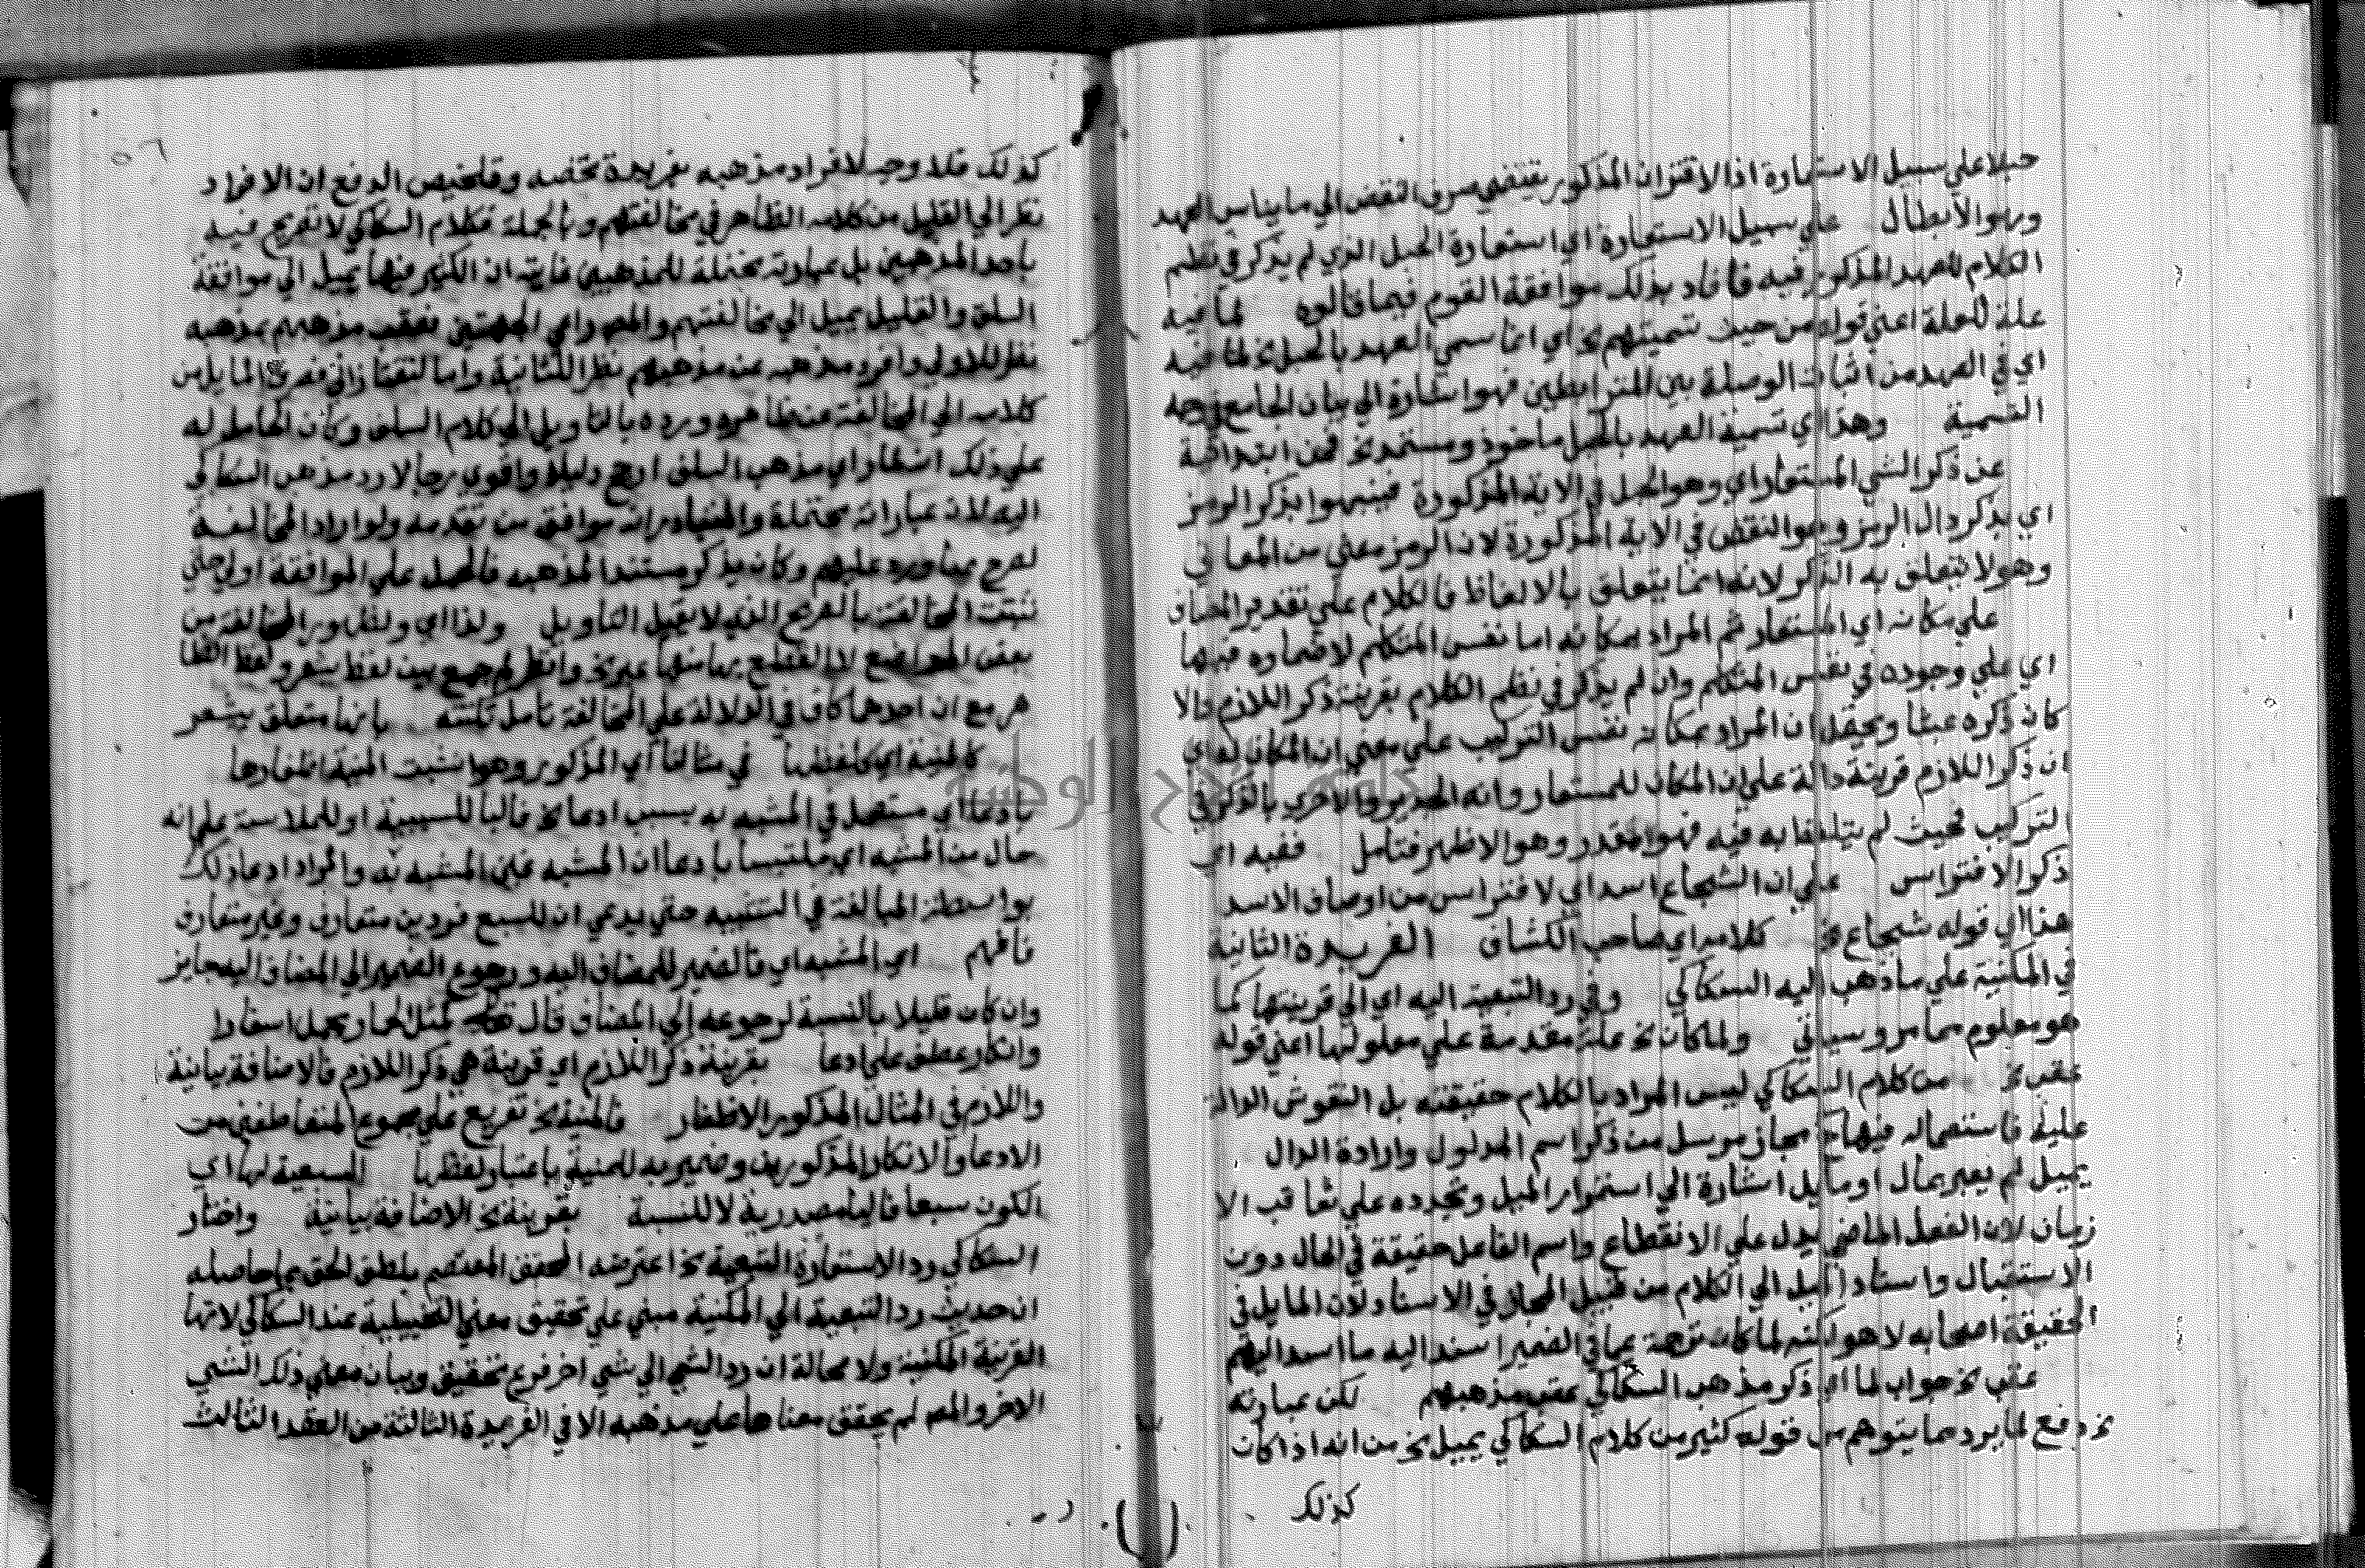 حبلا علي سبيل الاستعارة اذ الاقتران المذكور يقتضي صرف النقض الي ما يناسب العهد
وهو الابطال علي سبيل الاستعارة اي استعارة الحبل الذي لم يذكر في نظم
الكلام للعهد المذكور فيه فافاد بذلك موافقة القوم فيما قالوه لما فيه
علة للعلة اعني قوله من حيث تسميتهم الخ اي انما سمي العهد بالحبل الخ لما فيه
اي في العهد من اثبات الوصلة بين المترابطين فهو اشارة الي بيان الجامع وجه
التسمية وهذا اي تسمية العهد بالحبل ماخوذ ومستند الخ فمن ابتدائية
عن ذكر الشي المستعار اي وهو الحبل في الاية المذكورة فينبهوا بذكر الرمز
اي بذكر دال الرمز وهو النقض في الاية المذكورة لان الرمز معني من المعاني
وهو لا يتعلق به الذكر لانه انما يتعلق بالالفاظ فالكلام علي تقدير المضاف
علي مكانه اي المستعار ثم المراد بمكانه اما نفس المتكلم لاضماره فيها
اي علي وجوده في نفس المتكلم وان لم يذكر في نظم الكلام بقرينة ذكر اللازم والا
كان ذكره عبثا ويحتمل ان المراد بمكانه نفس التركيب علي معني ان المكان له اي
ان ذكر اللازم قرينة دالة علي ان المكان للمستعار وانه الجدير والاحري بالذكر في
التركيب فحيث لم يتلفظ به فيه فهو مقدر وهو الاظهر فتامل ففيه اي
ذكر الافتراس علي ان الشجاع اسد اي لا فتراس من اوصاف الاسد
هذا اي قوله شجاع الخ كلامه اي صاحب الكشاف الفريدة الثانية
في المكنية علي ما ذهب اليه السكاكي وفي رد التبعية اليه اي الي قرينتها كما
هو معلوم مما مر وسياتي ولما كان الخ علة مقدمة علي معلولها اعني قوله
عقب الخ من كلام السكاكي ليس المراد بالكلام حقيقته بل النقوش الدالة
عليه فاستعماله فيها مجاز مرسل من ذكر اسم المدلول وارادة الدال
يميل لم يعبر بمال او مايل اشارة الي استمرار الميل وتجدده علي تعاقب الا
زمان لان الفعل الماضي يدل علي الانقطاع واسم الفاعل حقيقة في الحال دون
الاستقبال واسناد الميل الي الكلام من قبيل المجاز في الاسناد لان المايل في
الحقيقة اصحابه لا هو لكنه لما كان ترجمة عما في الضمير اسند اليه ما اسند اليهم
عقب الخ جواب لما اي ذكر مذهب السكاكي عقب مذهبهم لكن عبارته
الخ دفع لما يرد مما يتوهم من قوله كثير من كلام السكاكي يميل الخ من انه اذا كان
كذلك
كذلك فلا وجه لافراد مذهبه بفريدة تخصه وتلخيص الدفع ان الافراد
نظر الي القليل من كلامه الظاهر في مخالفتهم وبالجملة فكلام السكاكي لا تصريح فيه
باحد المذهبين بل عبارته محتملة للمذهبين غايته ان الكثير فيها يميل الي موافقة
السلف والقليل يميل الي مخالفتهم والمص راعي الجهتين فعقب مذهبهم بمذهبه
نظر للاولي وافرد مذهبه عن مذهبهم نظر اللثانية واما التفتازاني فصرف المايل من
كلامه الي المخالفة عن ظاهره ورده بالتاويل الي كلام السلف وكان الحامل له
علي ذلك استظهار مذهب السلف ارجح دليلا واقوي رجالا ورد مذهب السكاكي
اليه لان عباراته محتملة والمتبادر انه موافق من تقدمه ولو اراد المخالفة
لصرح بما ورد عليهم وكان يذكر مستندا لمذهبه فالحمل علي الموافقة اولي حتي
تثبت المخالفة بالتصريح الذي لا يقبل التاويل ولذا اي ولظهور المخالفة من
بعض المواضع لا القطع بها منها عبر الخ وانظر لم جمع بين لفظ يشعر ولفظ الظا
هر مع ان احدهما كاف في الدلالة علي المخالفة تامل تلتئه بانها متعلق بيشعر
كالمنية اي كلفظها في مثالنا اي المذكور وهو انشبت المنية اظفارها
بادعا اي مستعمل في المشبه به بسبب ادعا الخ فالبا للسببية او للملابسة علي انه
حال من المشبه اي ملتبسا بادعا ان المشبه عين المشبه به والمراد ادعا ذلك
بواسطة المبالغة في التشبيه حتي يدعي ان للسبع فردين متعارف وغير متعارف
فافهم اي المشبه اي فالضمير للمضاف اليه ورجوع الضمير الي المضاف اليه جايز
وان كان قليلا بالنسبة لرجوعه الي المضاف قال تعالي كمثل الحمار يحمل اسفارا
وانكار عطف علي ادعا بقرينة ذكر اللازم اي قرينة هي ذكر اللازم فالاضافة بيانية
واللازم في المثال المذكور الاظفار فالمنية الخ تفريع علي مجموع المتعاطفين من
الادعا والانكار المذكورين وضمير به للمنية باعتبار لفظها السبعية لها اي
الكون سبعا فاليا مصدرية لا للنسبة بقرينة الخ الاضافة بيانية واختار
السكاكي رد الاستعارة التبعية الخ اعترضه المحقق المعتصم بلطف الحق بما حاصله
ان حديث رد التبعية الي المكنية مبني علي تحقيق معني التخييلية عند السكاكي لانها
القرينة المكنية ولا محالة ان رد الشي الي شي اخر فرع تحقيق وبيان معني ذلك الشي
الاخر والمص لم يحقق معناها علي مذهبه الا في الفريدة الثالثة من العقد الثالث